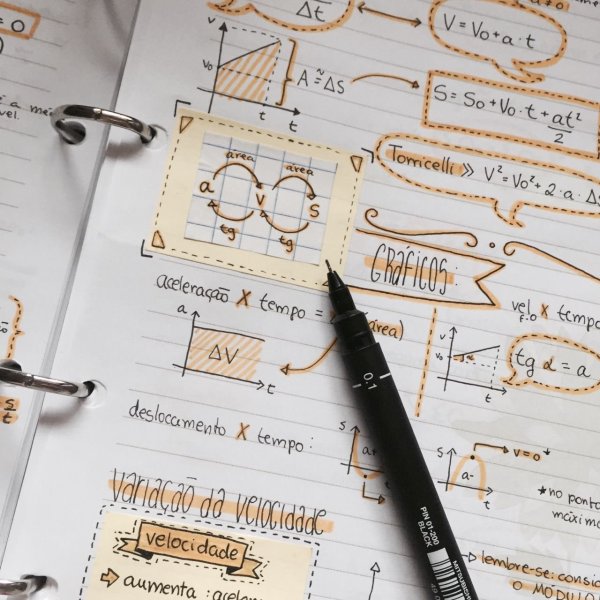 Δt
V = Vo + a · t
V
Vo
t
t
A ≈ ΔS
S = So + Vo · t + at²/2
Torricelli >> V² = Vo² + 2 · a · ΔS
área
área
a
V
S
tg
tg
GRÁFICOS:
aceleração X tempo = (área)
a
ΔV
t
vel X tempo
V
Vo
t
tg α = a
deslocamento X tempo:
S
a+
S
a-
t
V=0*
*no ponto
máximo
variação da velocidade
velocidade
aumenta : aceler
lembre-se: consid
O MÓDULO
0.1
PIN 01-200
BLACK
MITSUBISHI